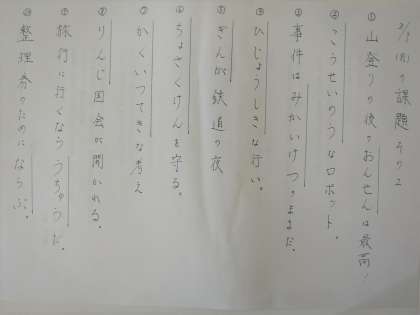 3/1(月)の課題 その2
① 山登りの後のおんせんは最高!
② こうせいのうなロボット。
③ 事件はみかいけつのままだ。
④ ひじょうしきな行い。
⑤ ぎんが鉄道の夜
⑥ ちょさくけんを守る。
⑦ かくいつてきな考え
⑧ りんじ国会が開かれる。
⑨ 旅行に行くなら うちゅうだ。
⑩ 整理券のためにならぶ。